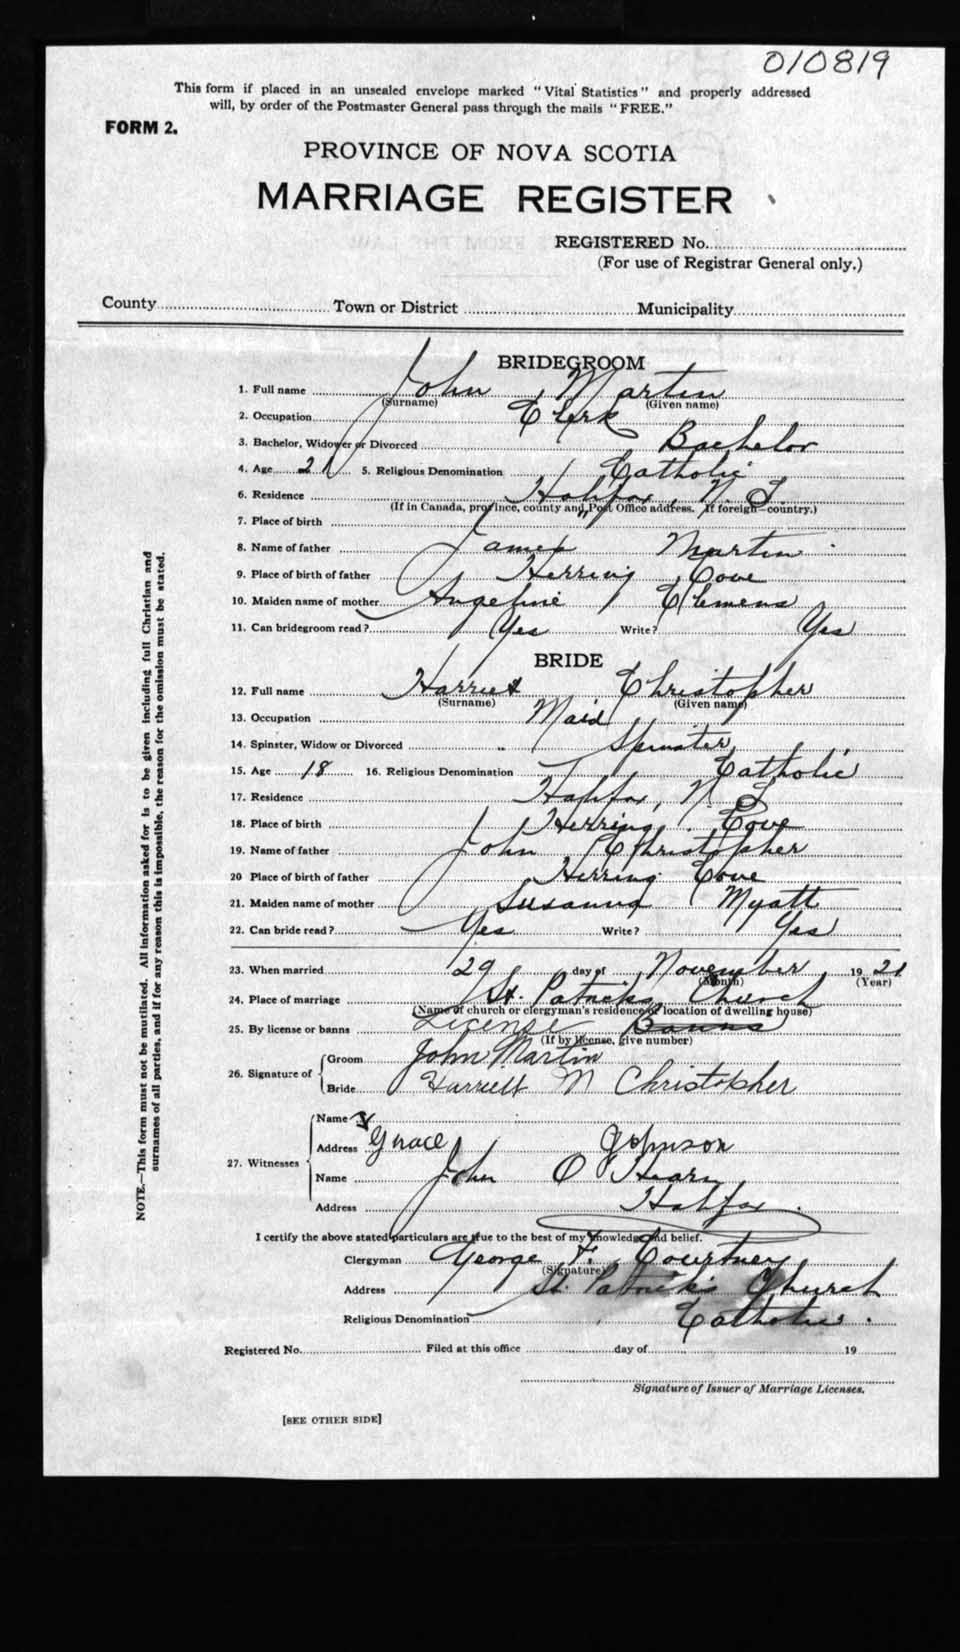 010819
This form if placed in an unsealed envelope marked "Vital Statistics" and properly addressed
will, by order of the Postmaster General pass through the mails "FREE."
FORM 2.
PROVINCE OF NOVA SCOTIA
MARRIAGE REGISTER
REGISTERED No.
(For use of Registrar General only.)
County Town or District Municipality
BRIDEGROOM
1. Full name John Martin
(Surname) (Given name)
2. Occupation Clerk
3. Bachelor, Widower or Divorced Bachelor
4. Age 21 5. Religious Denomination Catholic
6. Residence Halifax, N. S.
(If in Canada, province, county and Post Office address. If foreign—country.)
7. Place of birth "
8. Name of father James Martin
9. Place of birth of father Herring Cove
10. Maiden name of mother Angeline Clemens
11. Can bridegroom read? Yes Write? Yes
BRIDE
12. Full name Harriet Christopher
(Surname) (Given name)
13. Occupation Maid
14. Spinster, Widow or Divorced Spinster
15. Age 18 16. Religious Denomination Catholic
17. Residence Halifax, N. S.
18. Place of birth Herring Cove
19. Name of father John Christopher
20 Place of birth of father Herring Cove
21. Maiden name of mother Susanna Myatt
22. Can bride read? Yes Write? Yes
23. When married 29 day of November 1921
(Month) (Year)
24. Place of marriage St. Patricks Church
(Name of church or clergyman's residence or location of dwelling house)
25. By license or banns License Banns
(If by license, give number)
26. Signature of Groom John Martin
Bride Harriett M Christopher
27. Witnesses Name
Address Grace Johnson
Name John O'Hearn
Address Halifax.
I certify the above stated particulars are true to the best of my knowledge and belief.
Clergyman George F. Courtney
(Signature)
Address St. Patrick's Church
Religious Denomination Catholic.
Registered No. Filed at this office day of 19
Signature of Issuer of Marriage Licenses.
[SEE OTHER SIDE]
NOTE.—This form must not be mutilated. All information asked for is to be given including full Christian and
surnames of all parties, and if for any reason this is impossible, the reason for the omission must be stated.